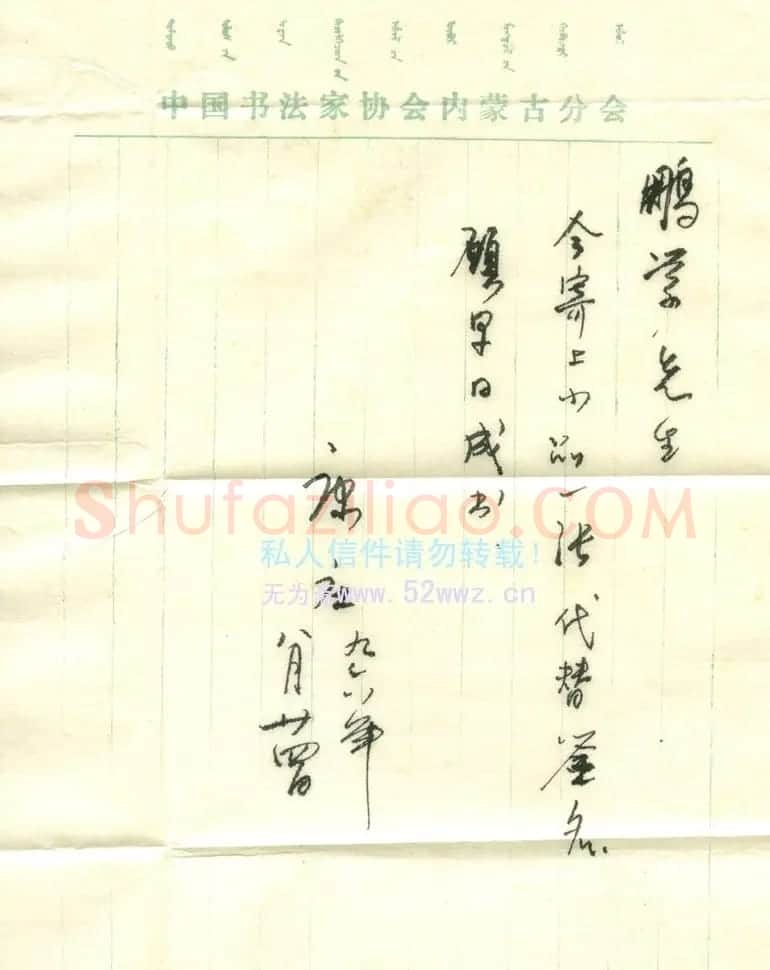 中国书法家协会内蒙古分会
鹏学先生
今寄上小品一张代替签名
愿早日成书
康庄
九六年
八月廿四日
Shufaziliao.COM
私人信件请勿转载!
www.52wwz.cn